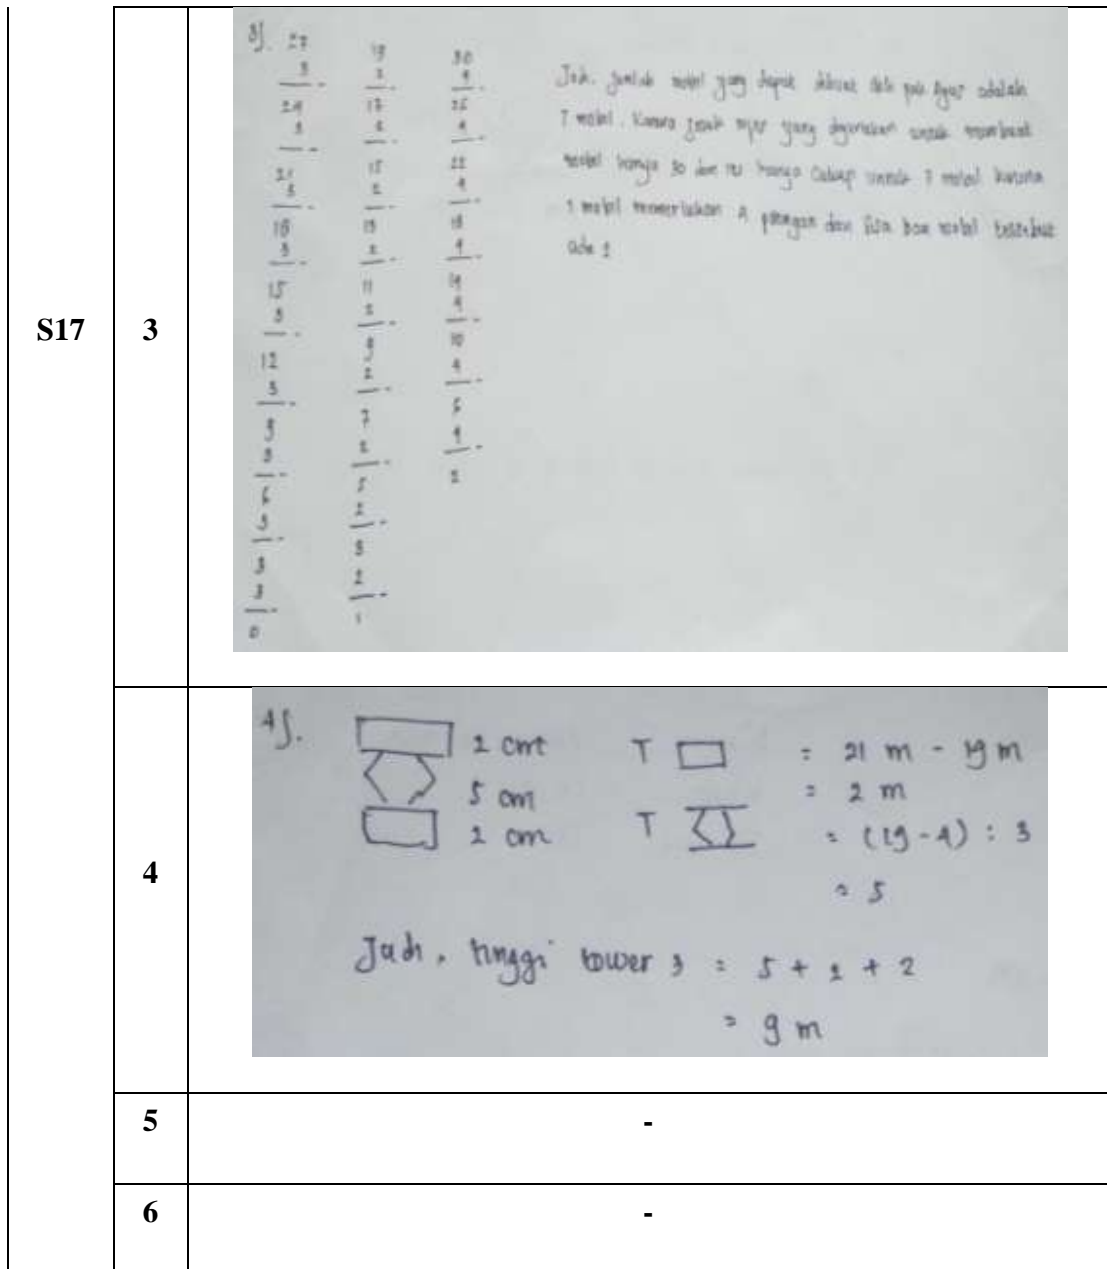 S17
3
3).
27
3 -
24
3 -
21
3 -
18
3 -
15
3 -
12
3 -
9
3 -
6
3 -
3
3 -
0
19
2 -
17
2 -
15
2 -
13
2 -
11
2 -
9
2 -
7
2 -
5
2 -
3
2 -
1
30
4 -
26
4 -
22
4 -
18
4 -
14
4 -
10
4 -
6
4 -
2
Jadi, jumlah mobil yang dapat dibuat oleh pak Agus adalah
7 mobil. Karena yang digunakan untuk membuat
mobil hanya 30 dan itu hanya cukup untuk 7 mobil karena
1 mobil memerlukan 4 dan mobil tersebut
ada 2
4
4).
2 cm
T = 21 m - 19 m
5 cm
= 2 m
2 cm
T = (19 - 4) : 3
= 5
Jadi, tinggi tower 3 = 5 + 2 + 2
= 9 m
5
-
6
-